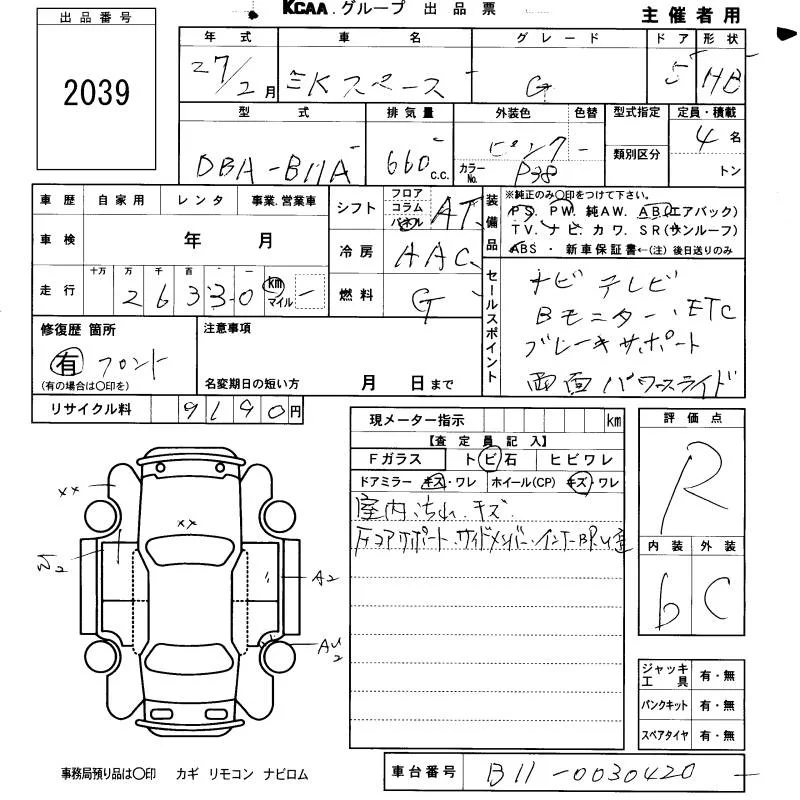 KCAA.グループ 出品票
主催者用
出品番号
2039
年式 車名 グレード ドア 形状
27/2月 ミKスペース G 5 HB
型式 排気量 外装色 色替 型式指定 定員・積載
DBA-B11A 660c.c. ピンク - 4名
カラーNo. P38 類別区分 トン
車歴 自家用 レンタ 事業.営業車
車検 年 月
走行 十万 万 千 百 十 一
2 6 3 3 0 km マイル
シフト フロア コラム パネル AT
冷房 AAC
燃料 G
装備品 ※純正のみ○印をつけて下さい。
PS. PW. 純AW. AB(エアバック)
TV.ナビ.カワ.SR(サンルーフ)
ABS ・ 新車保証書←(注) 後日送りのみ
セールスポイント
ナビ テレビ
Bモニター.ETC
ブレーキサポート
両面パワースライド
修復歴 箇所
有 フロント
(有の場合は○印を)
注意事項
名変期日の短い方 月 日まで
リサイクル料 9190円
現メーター指示 km
【査定員記入】
Fガラス トビ石 ヒビワレ
ドアミラー キズ・ワレ ホイール(CP) キズ・ワレ
室内.汚れ.キズ
コアサポート.サイドメンバー.インナー
評価点
R
内装 外装
b C
×× ××
2
A2
AU2
ジャッキ工具 有・無
パンクキット 有・無
スペアタイヤ 有・無
事務局預り品は○印 カギ リモコン ナビロム
車台番号 B11-0030420